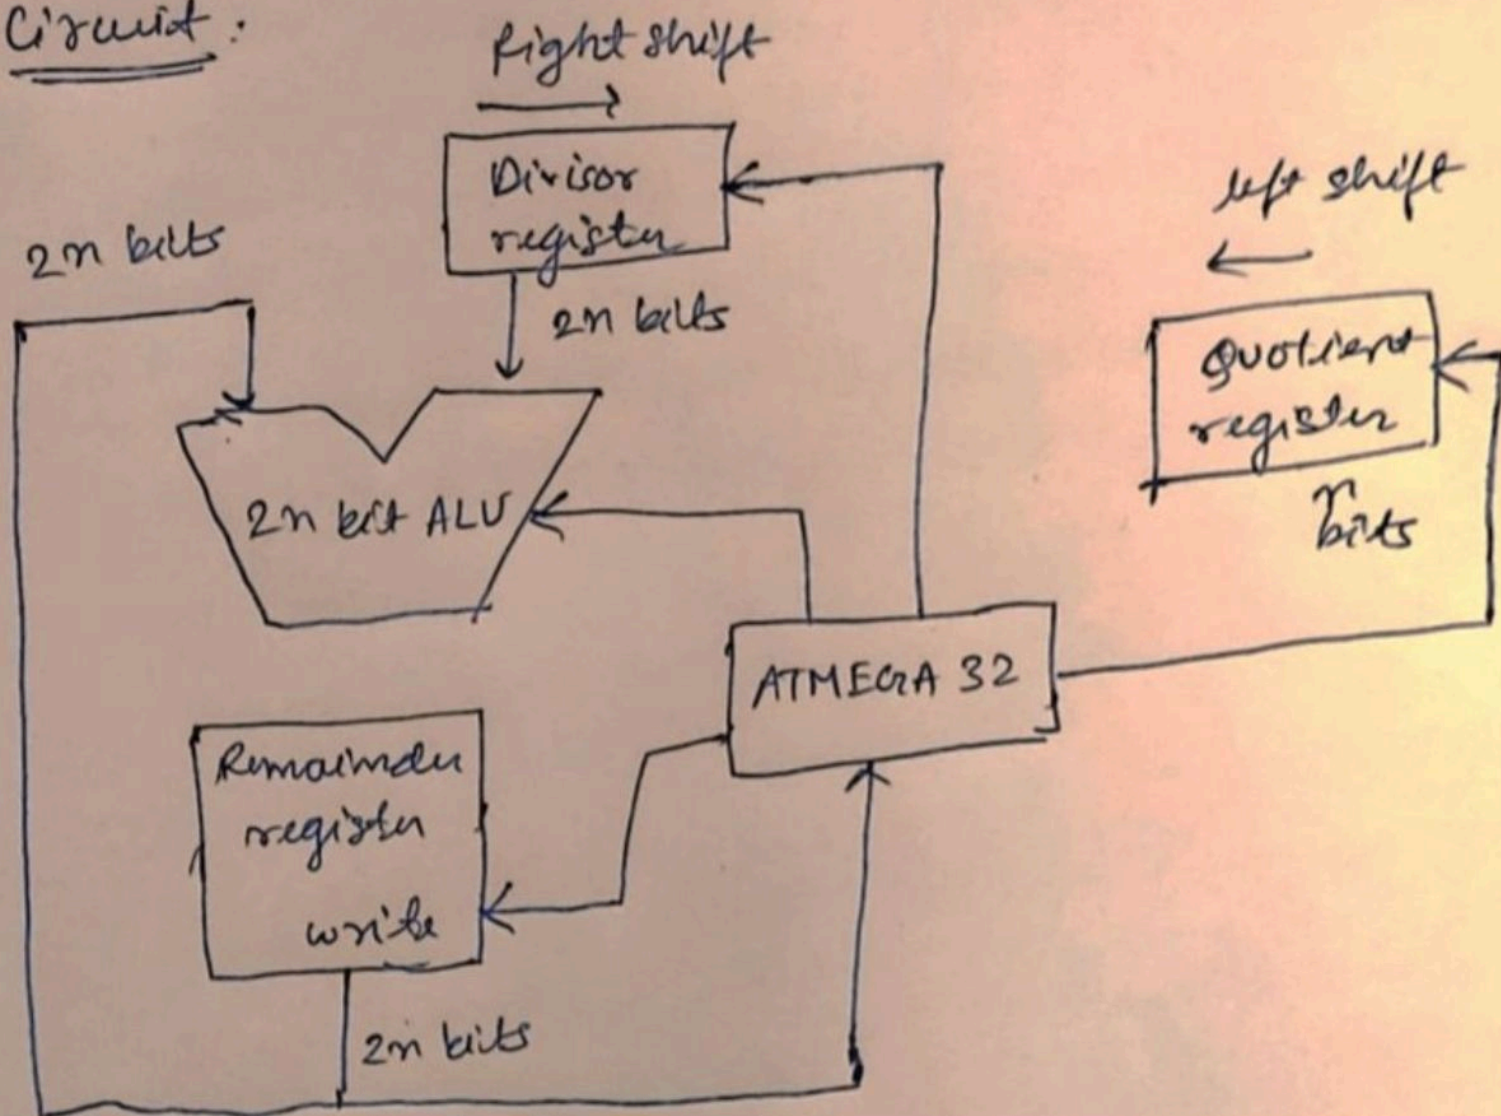 Circuit :
Right shift
Divisor
register
left shift
2n bits
2n bits
Quotient
register
n
bits
2n bit ALU
ATMEGA 32
Remainder
register
write
2n bits